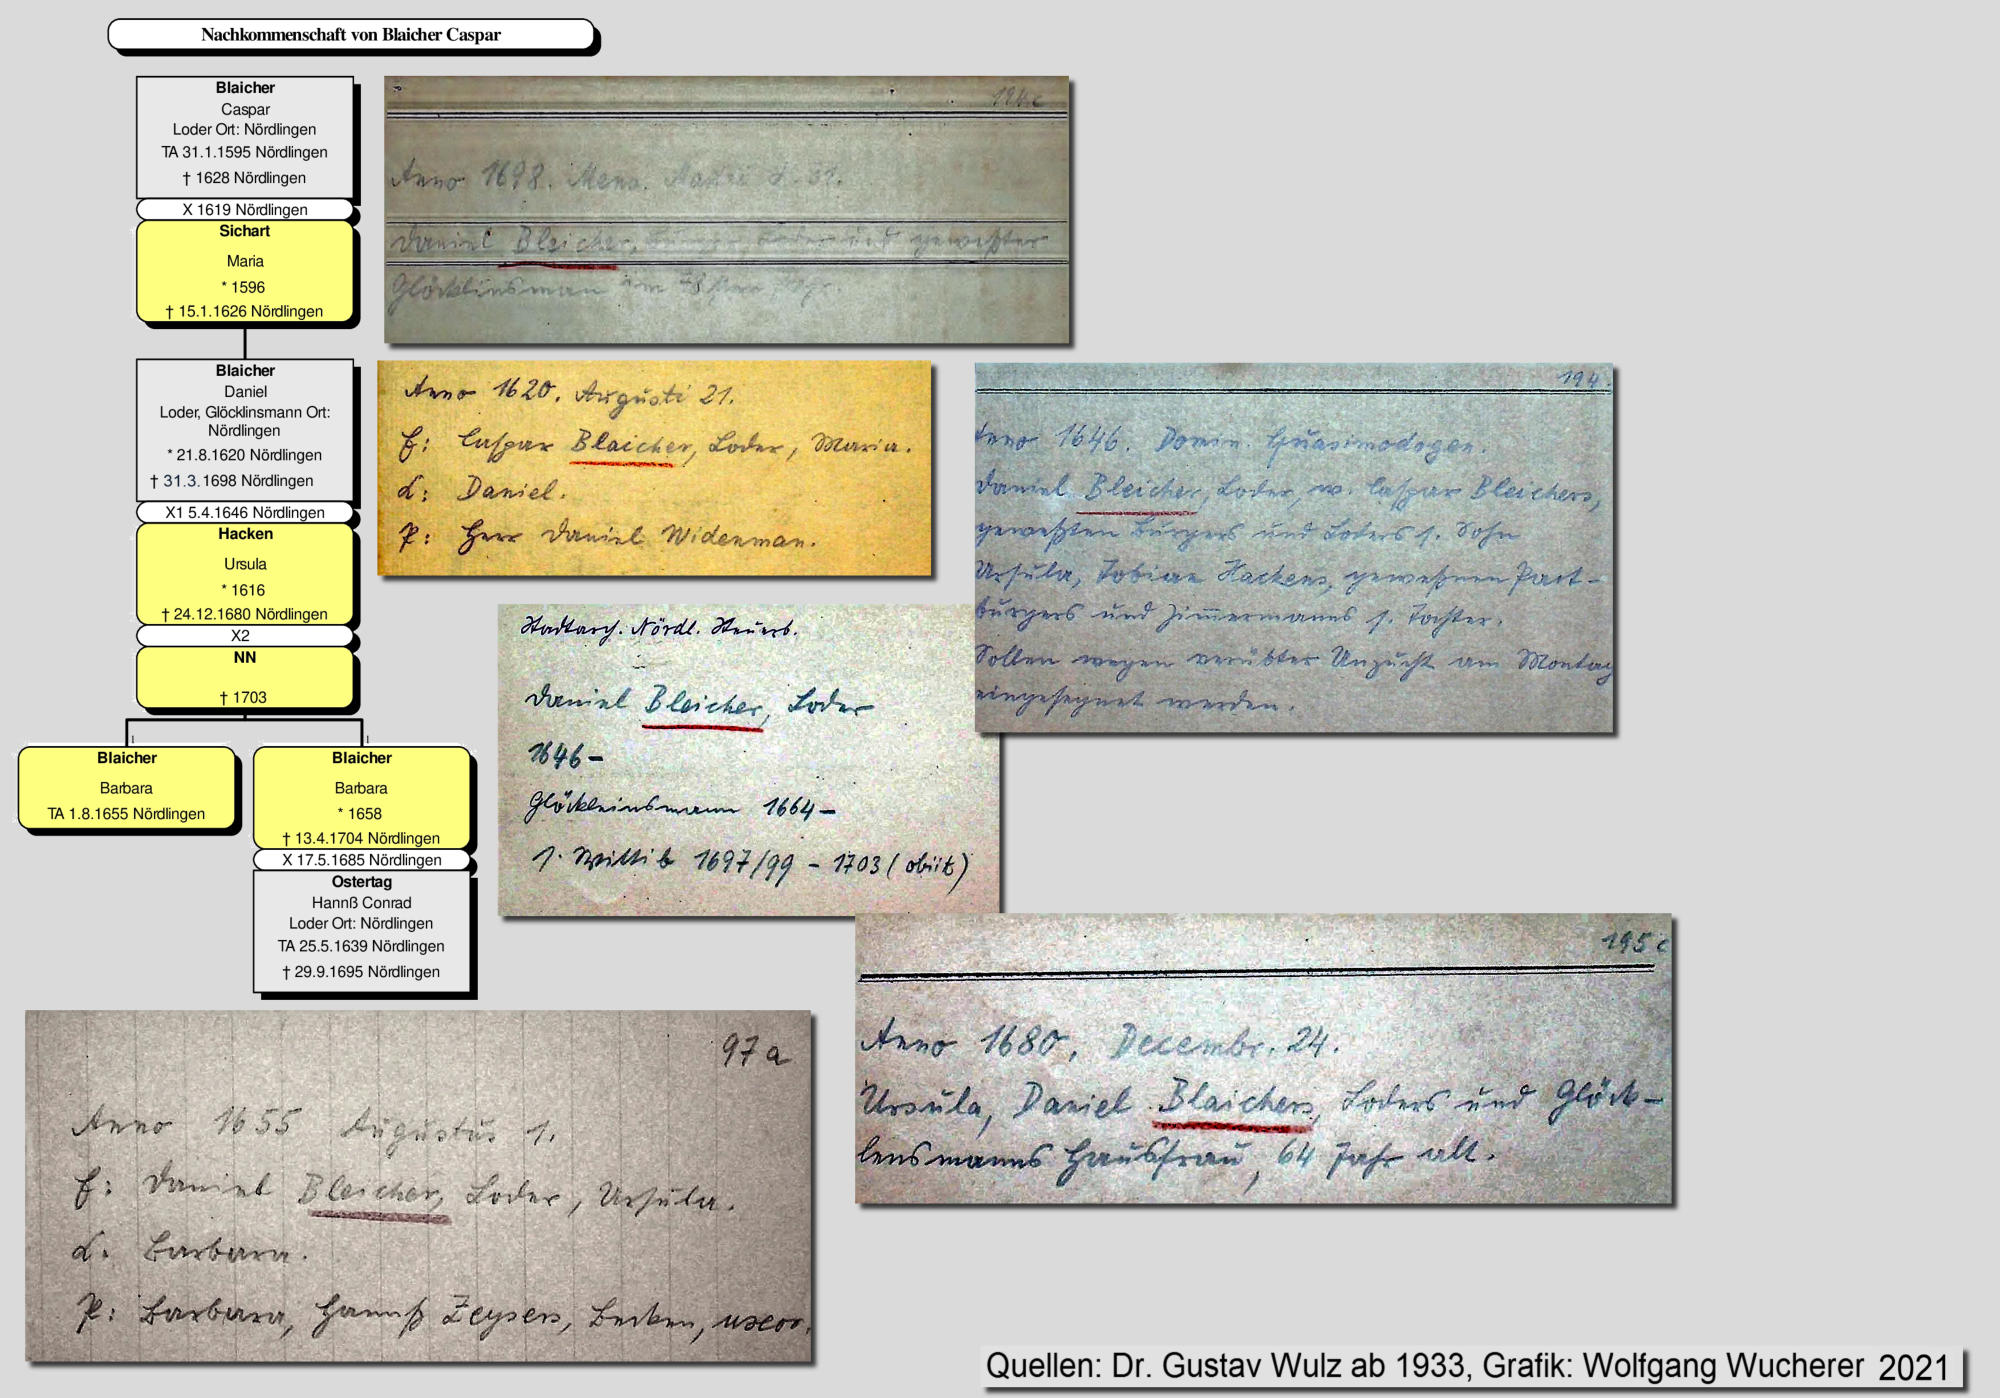 Nachkommenschaft von Blaicher Caspar
Blaicher
Caspar
Loder Ort: Nördlingen
TA 31.1.1595 Nördlingen
† 1628 Nördlingen
X 1619 Nördlingen
Sichart
Maria
* 1596
† 15.1.1626 Nördlingen
Blaicher
Daniel
Loder, Glöcklinsmann Ort:
Nördlingen
* 21.8.1620 Nördlingen
† 31.3.1698 Nördlingen
X1 5.4.1646 Nördlingen
Hacken
Ursula
* 1616
† 24.12.1680 Nördlingen
X2
NN
† 1703
1
1
Blaicher
Barbara
TA 1.8.1655 Nördlingen
Blaicher
Barbara
* 1658
† 13.4.1704 Nördlingen
X 17.5.1685 Nördlingen
Ostertag
Hannß Conrad
Loder Ort: Nördlingen
TA 25.5.1639 Nördlingen
† 29.9.1695 Nördlingen
194c
Anno 1698. Mens. d. 31.
Daniel Bleicher, Burger, Loder und geweßter
Glöcklinsman im 78
Anno 1620. Augusti 21.
f: Caspar Blaicher, Loder, Maria.
L: Daniel.
P: Herr Daniel Widenman.
194.
Anno 1646. Domin. Quasimodogen.
Daniel Bleicher, Loder, w. Caspar Bleichers,
geweßten Burgers und Loders s. Sohn
Ursula, Tobiae Hackens, geweßnen Pact-
burgers und Zimmermanns s. Tochter.
Sollen wegen verübter Unzucht am Montag
eingesegnet werden.
Stadtarch. Nördl. Steuerb.
Daniel Bleicher, Loder
1646–
Glöckleinsmann 1664–
s. Wittib 1697/99 – 1703 (obiit)
195c
Anno 1680. Decembr. 24.
Ursula, Daniel Blaichers, Loders und Glöck-
lensmanns Hausfrau, 64 Jahr alt.
97a
Anno 1655 Augustus 1.
f: Daniel Bleicher, Loder, Ursula.
L: Barbara.
P: Barbara, Hannß Zeysers, Becken, uxor.
Quellen: Dr. Gustav Wulz ab 1933, Grafik: Wolfgang Wucherer 2021